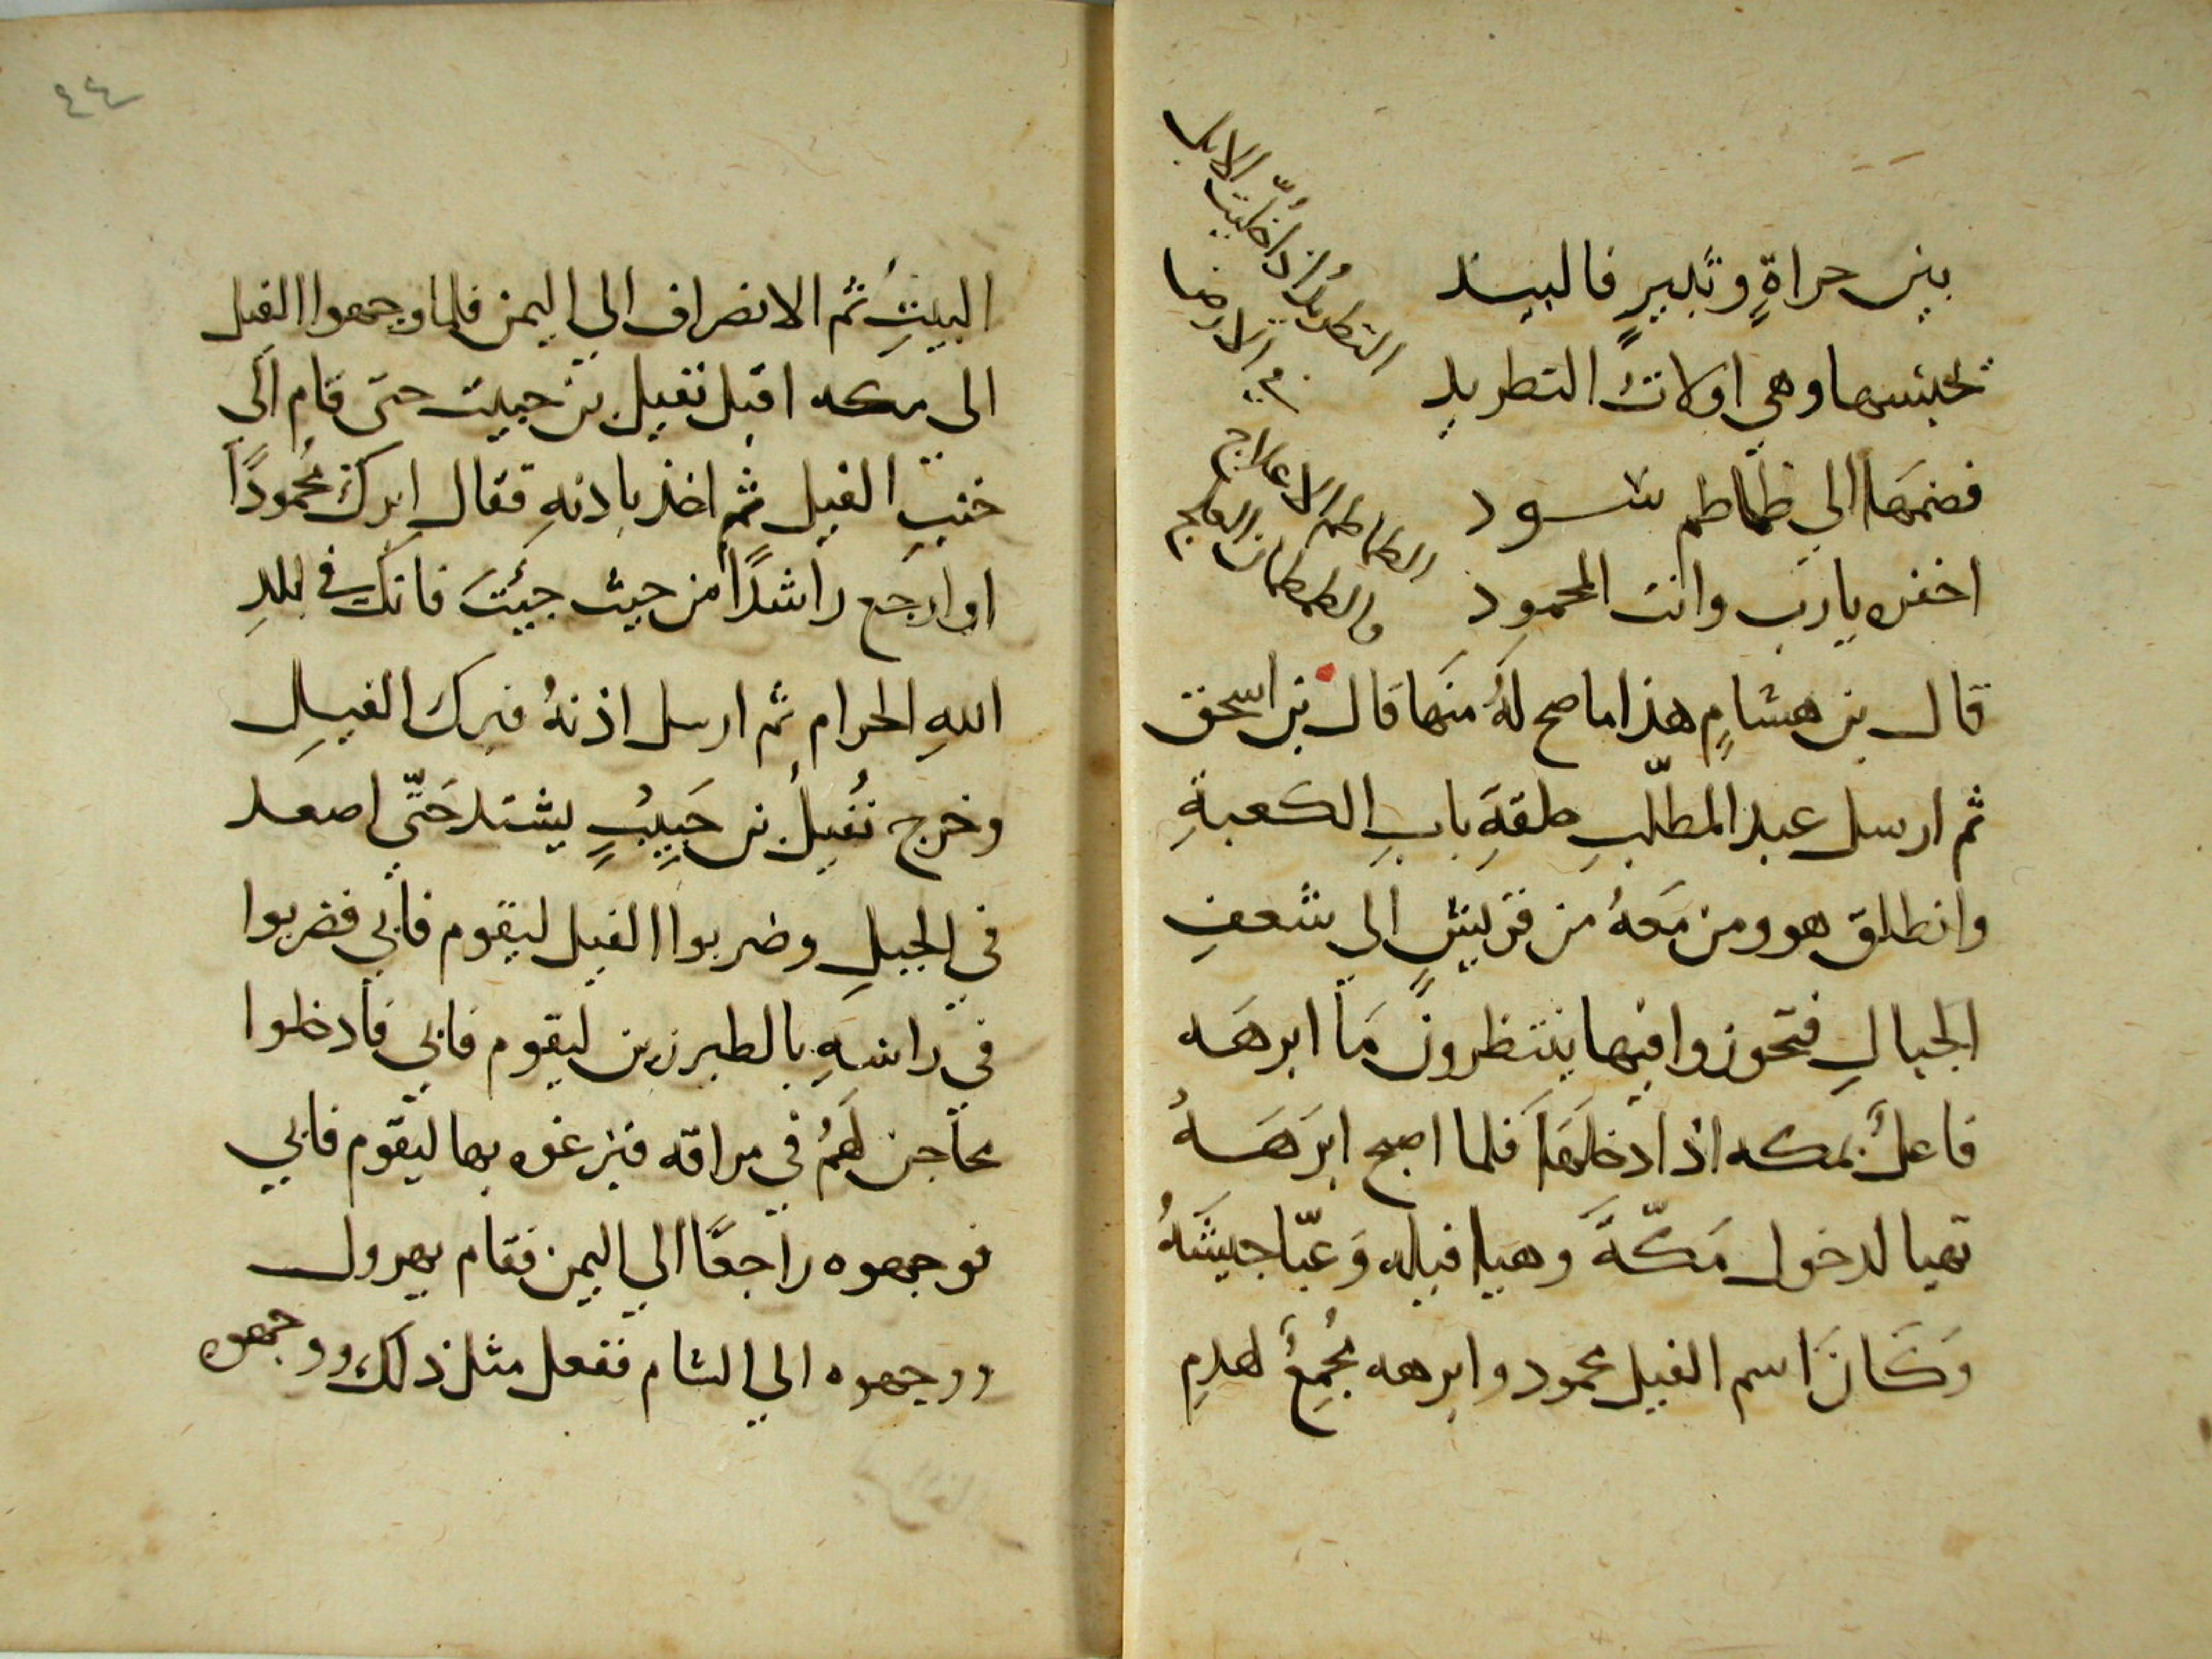 بين حراةٍ وثبيرٍ فالبيد
تحبسها وهي اولات التطريد
فضمها الي طماطم سود
اخفره يا رب وانت المحمود
قال بن هشامٍ هذا ما صح لهُ منها قال بن اسحق
ثم ارسل عبد المطّلبِ حلقةِ بابِ الكعبةِ
وانطلق هو ومن مَعهُ من قريشٍ الي شعفِ
الجبالِ فتحوزوا فيها ينتظرون مَا ابرهَه
فاعلٌ بمكه اذا دخلهَا فلما اصبح ابرَهَهُ
تهيا لدخول مَكّةَ وهيا فيله وَعبّا جيشَهُ
وَكَانَ اسم الفيل محمود وابرهه مُجمِعٌ لهدمِ
التطريدُ اذا خليت الابل
في الارض
الطماطم الاعلاج
والطمطمان العلج
٤٤
البيتِ ثم الانصراف الي اليمن فلما وجهوا الفيل
الى مكه اقبل نفيل بن حبيب حتى قام الَى
جنبِ الفيل ثم اخذ باذنهِ فقال ابرك مُحمودًا
او ارجع راشدًا من حيث جيئتَ فانك في بلدِ
اللهِ الحرام ثم ارسل اذنهُ فبرك الفيلِ
وخرج نُفيلُ بن حَبِيبٍ يشتد حَتّى اصعد
في الجبلِ وضربوا الفيل ليقوم فابي فضربوا
في راسهِ بالطبرزين ليقوم فابي فادخلوا
محاجن لَهمُ في مراقه فبزغوه بها ليقوم فابي
فوجهوه راجعًا الي اليمن فقام يهرول
ووجهوه الي الشام ففعل مثل ذلك ووجهوه